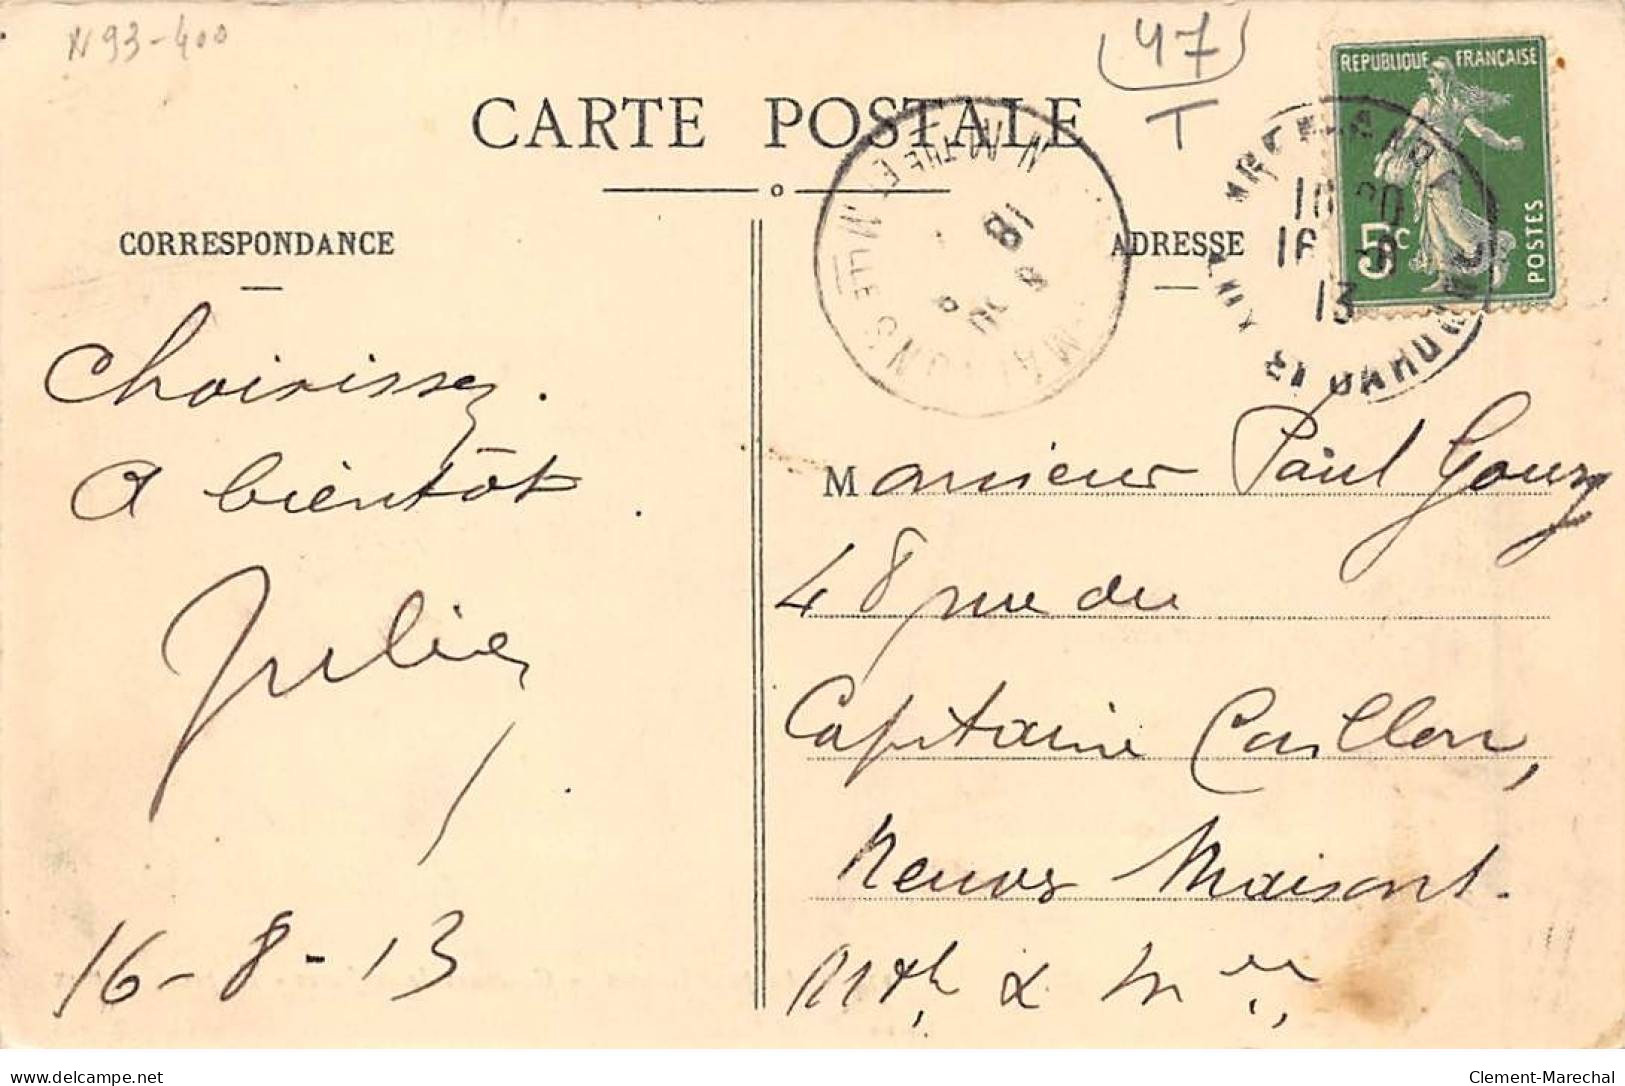 N 93-400
47
T
CARTE POSTALE
REPUBLIQUE FRANÇAISE
5c
POSTES
16
13
18
MTHE ET MLLE
CORRESPONDANCE
ADRESSE
Choisissez.
A bientôt.
Julien
16-8-13
Monsieur Paul Gouzy
48 rue du
Capitaine Caillon,
Neuves Maisons.
Mth & Mlle
Clement-Marechal